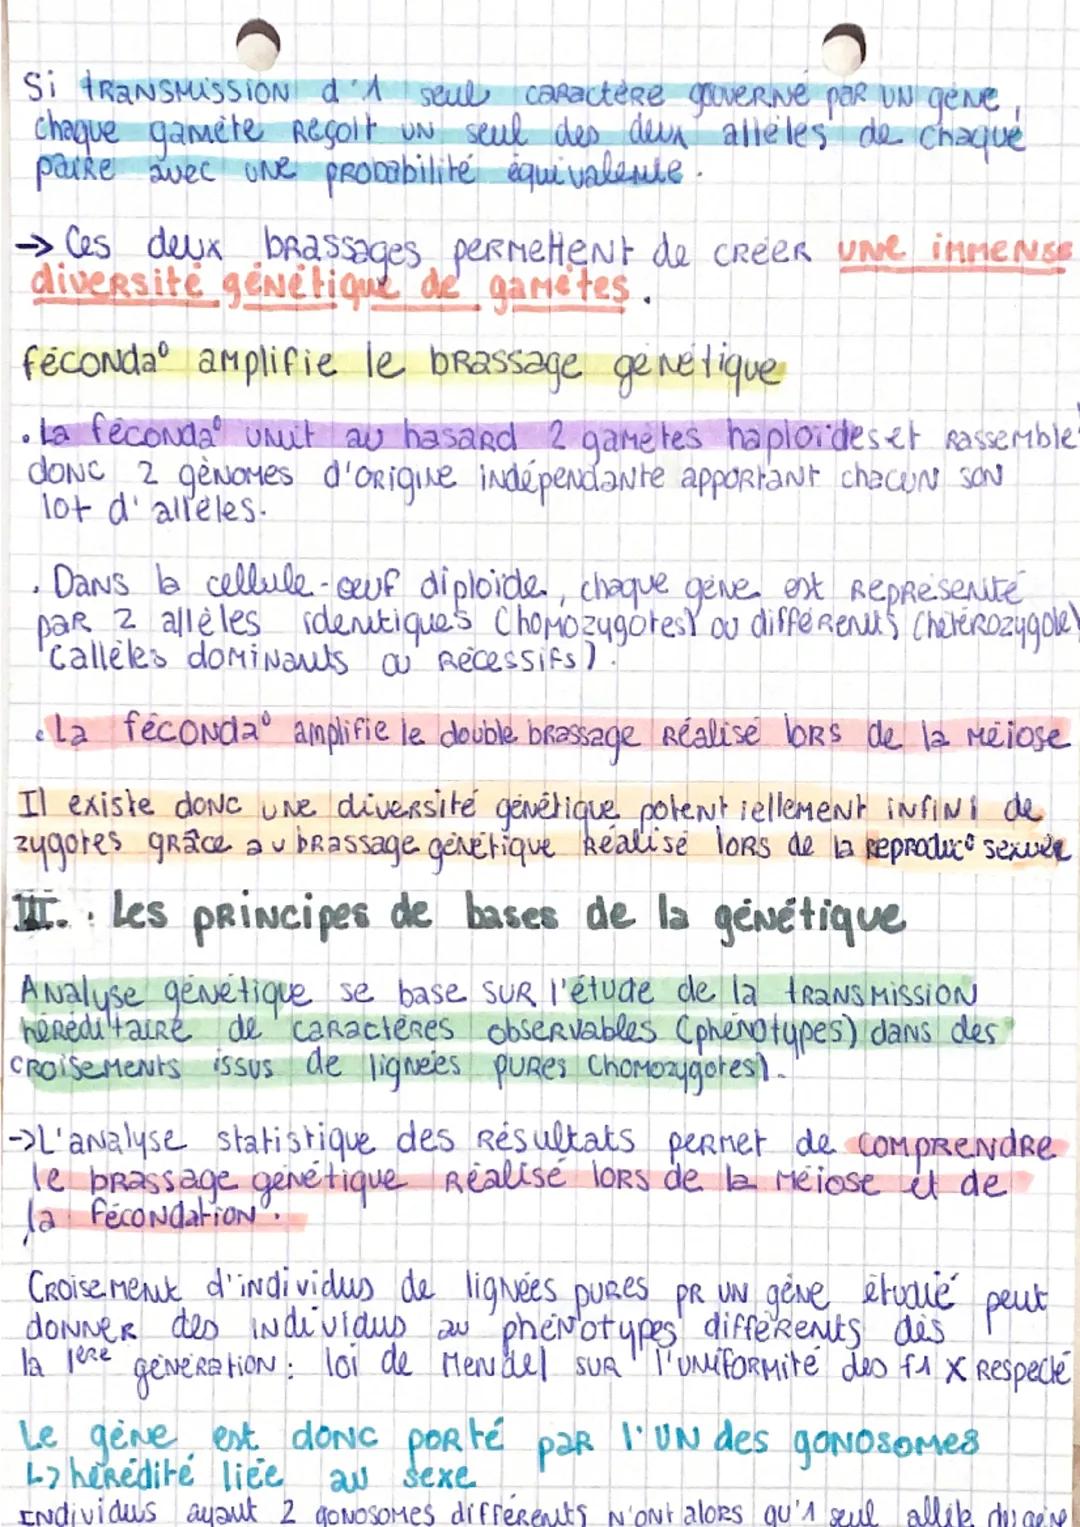 Si transmission d'1 seul caractère gouverné par un gène,
chaque gamète reçoit un seul des deux allèles de chaque
paire avec une probabilité équivalente.
→ Ces deux brassages permettent de créer une immense
diversité génétique de gamètes.
féconda° amplifie le brassage génétique
. La féconda° unit au hasard 2 gamètes haploïdes et rassemble
donc 2 génomes d'origine indépendante apportant chacun son
lot d'allèles.
. Dans la cellule-œuf diploïde, chaque gène est représenté
par 2 allèles identiques (homozygotes) ou différents (hétérozygote)
(allèles dominants ou récessifs).
. La féconda° amplifie le double brassage réalisé lors de la méiose
Il existe donc une diversité génétique potentiellement infini de
zygotes grâce au brassage génétique réalisé lors de la reproduc° sexuée
III. : Les principes de bases de la génétique
Analyse génétique se base sur l'étude de la transmission
héréditaire de caractères observables (phénotypes) dans des
croisements issus de lignées pures (homozygotes).
->L'analyse statistique des résultats permet de comprendre
le brassage génétique réalisé lors de la méiose et de
la fécondation.
Croisement d'individus de lignées pures pr un gène étudié peut
donner des individus au phénotypes différents dès
la 1ère génération : loi de Mendel sur l'uniformité des f1 X respecté
Le gène est donc porté par l'un des gonosomes
↳ hérédité liée au sexe
Individus ayant 2 gonosomes différents n'ont alors qu'1 seul allèle du gène